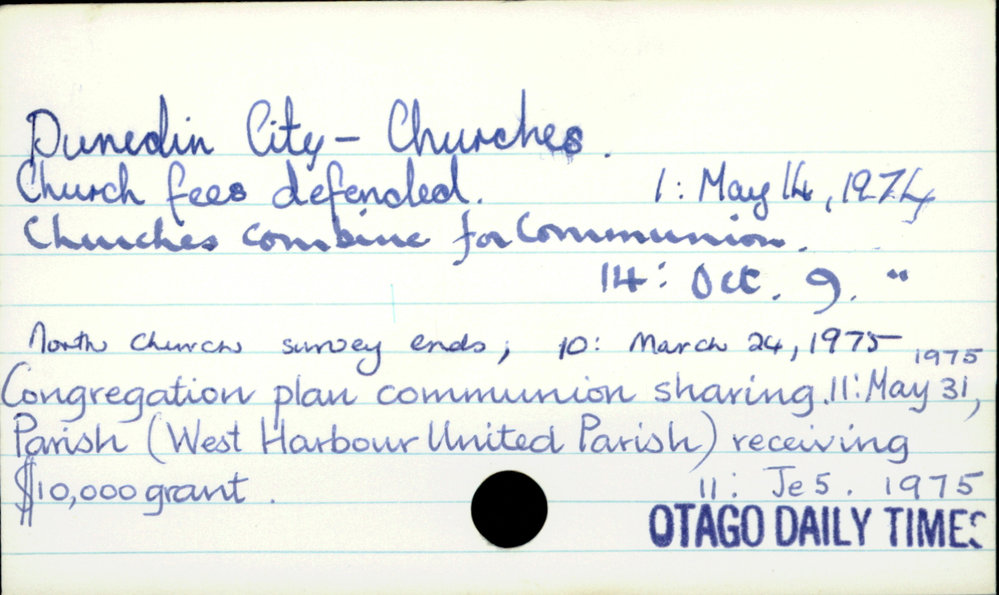 Dunedin City - Churches.
Church fees defended. 1: May 14, 1974
Churches combine for Communion.
14: Oct. 9. "
North Church survey ends; 10: March 24, 1975
Congregation plan communion sharing. 11: May 31, 1975
Parish (West Harbour United Parish) receiving
$10,000 grant. 11: Je 5. 1975
OTAGO DAILY TIMES